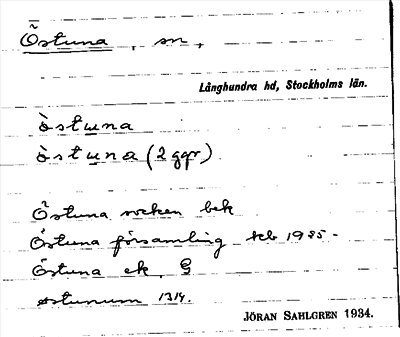 Östuna, sn,
Långhundra hd, Stockholms län.
òstuna
òstuna (2 ggr)
Östuna socken bek
Östuna församling kb 1935-
Östuna ek. G
østunum 1314.
JÖRAN SAHLGREN 1934.